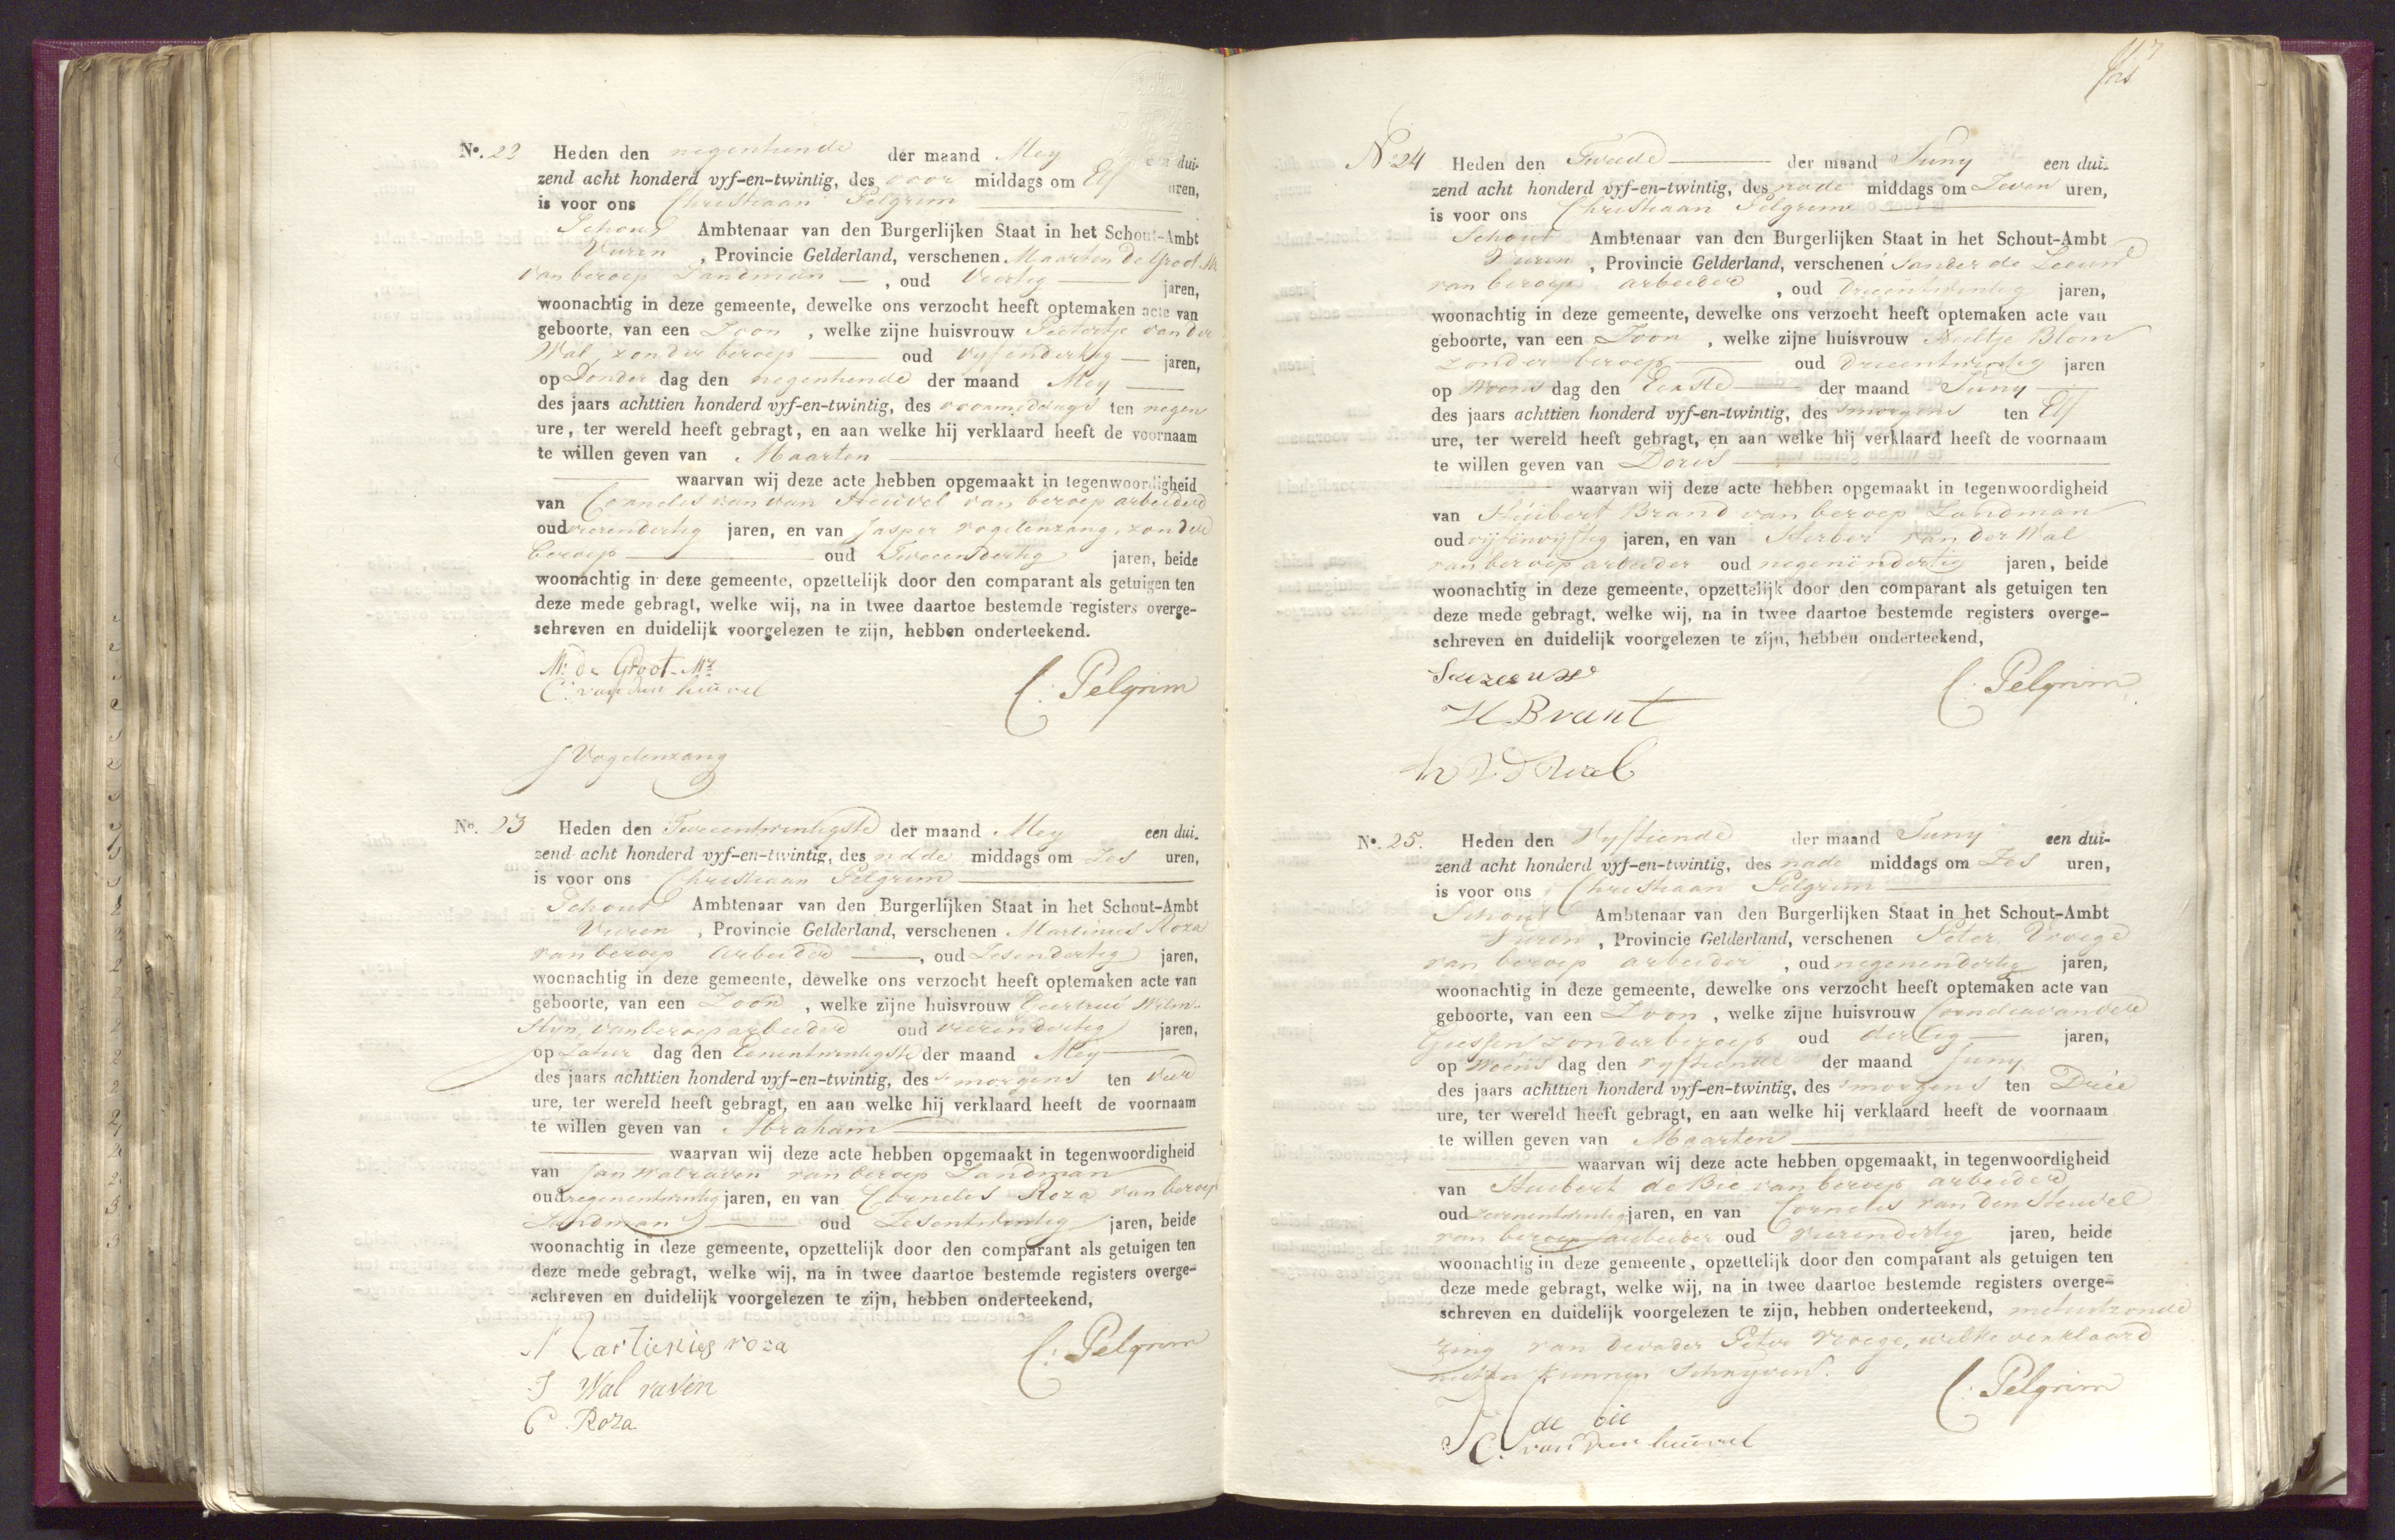 No. 22 Heden den negentiende der maand Mey een dui-
zend acht honderd vyf-en-twintig, des voor middags om Elf uren,
is voor ons Christiaan Pelgrim
Schout Ambtenaar van den Burgerlijken Staat in het Schout-Ambt
Vuren, Provincie Gelderland, verschenen Maarten de Groot Mz
van beroep Landman, oud Veertig jaren,
woonachtig in deze gemeente, dewelke ons verzocht heeft optemaken acte van
geboorte, van een Zoon, welke zijne huisvrouw Pietertje van der
Wal, zonder beroep oud vyfendertig jaren,
op Donder dag den negentiende der maand Mey
des jaars achttien honderd vyf-en-twintig, des voormiddags ten negen
ure, ter wereld heeft gebragt, en aan welke hij verklaard heeft de voornaam
te willen geven van Maarten
waarvan wij deze acte hebben opgemaakt in tegenwoordigheid
van Cornelis van den Heuvel van beroep arbeider
oud vierendertig jaren, en van Jasper Vogelenzang, zonder
beroep oud Tweeendertig jaren, beide
woonachtig in deze gemeente, opzettelijk door den comparant als getuigen ten
deze mede gebragt, welke wij, na in twee daartoe bestemde registers overge-
schreven en duidelijk voorgelezen te zijn, hebben onderteekend.
M: de Groot Mz
C: van den heuvel C: Pelgrim
J Vogelenzang
No. 23 Heden den Tweeentwintigste der maand Mey een dui-
zend acht honderd vyf-en-twintig, des nade middags om Zes uren,
is voor ons Christiaan Pelgrim
Schout Ambtenaar van den Burgerlijken Staat in het Schout-Ambt
Vuren, Provincie Gelderland, verschenen Martinus Roza
van beroep arbeider, oud Zesendertig jaren,
woonachtig in deze gemeente, dewelke ons verzocht heeft optemaken acte van
geboorte, van een Zoon, welke zijne huisvrouw Geertrui
van beroep arbeider oud vierendertig jaren,
op Zatur dag den Eenentwintigste der maand Mey
des jaars achttien honderd vyf-en-twintig, des smorgens ten vier
ure, ter wereld heeft gebragt, en aan welke hij verklaard heeft de voornaam
te willen geven van Abraham
waarvan wij deze acte hebben opgemaakt in tegenwoordigheid
van Jan Walraven van beroep Landman
oud negenentwintig jaren, en van Cornelis Roza van beroep
Landman oud Zesentwintig jaren, beide
woonachtig in deze gemeente, opzettelijk door den comparant als getuigen ten
deze mede gebragt, welke wij, na in twee daartoe bestemde registers overge-
schreven en duidelijk voorgelezen te zijn, hebben onderteekend,
Martienies roza C: Pelgrim
J Wal raven
C. Roza
No 24 Heden den Tweede der maand Juny een dui-
zend acht honderd vyf-en-twintig, des nade middags om Zeven uren,
is voor ons Christiaan Pelgrim
Schout Ambtenaar van den Burgerlijken Staat in het Schout-Ambt
Vuren, Provincie Gelderland, verschenen Sander de Leeuw
van beroep arbeider, oud Drieentwintig jaren,
woonachtig in deze gemeente, dewelke ons verzocht heeft optemaken acte van
geboorte, van een Zoon, welke zijne huisvrouw Neeltje Blom
zonder beroep oud Drieentwintig jaren
op Woens dag den Eerste der maand Juny
des jaars achttien honderd vyf-en-twintig, des smorgens ten Elf
ure, ter wereld heeft gebragt, en aan welke hij verklaard heeft de voornaam
te willen geven van Doris
waarvan wij deze acte hebben opgemaakt in tegenwoordigheid
van Huibert Brand van beroep Landman
oud vijfenvijftig jaren, en van Herber van der Wal
van beroep arbeider oud negenendertig jaren, beide
woonachtig in deze gemeente, opzettelijk door den comparant als getuigen ten
deze mede gebragt, welke wij, na in twee daartoe bestemde registers overge-
schreven en duidelijk voorgelezen te zijn, hebben onderteekend,
C: Pelgrim
H Brant
h V D Wal
No. 25. Heden den vyftiende der maand Juny een dui-
zend acht honderd vyf-en-twintig, des nade middags om Zes uren,
is voor ons Christiaan Pelgrim
Schout Ambtenaar van den Burgerlijken Staat in het Schout-Ambt
Vuren, Provincie Gelderland, verschenen Peter Vroege
van beroep arbeider, oud negenendertig jaren,
woonachtig in deze gemeente, dewelke ons verzocht heeft optemaken acte van
geboorte, van een Zoon, welke zijne huisvrouw Cornelia van der
Giessen zonder beroep oud dertig jaren,
op Woens dag den vyftiende der maand Juny
des jaars achttien honderd vyf-en-twintig, des smorgens ten Driee
ure, ter wereld heeft gebragt, en aan welke hij verklaard heeft de voornaam
te willen geven van Maarten
waarvan wij deze acte hebben opgemaakt, in tegenwoordigheid
van Huibert de Bie van beroep arbeider
oud zevenentwintig jaren, en van Cornelis van den Heuvel
van beroep arbeider oud vierendertig jaren, beide
woonachtig in deze gemeente, opzettelijk door den comparant als getuigen ten
deze mede gebragt, welke wij, na in twee daartoe bestemde registers overge-
schreven en duidelijk voorgelezen te zijn, hebben onderteekend, met uitzonde
ring van de vader Peter Vroege, welke verklaard
niet te kunnen schryven. C: Pelgrim
H de bie
C. van den heuvel